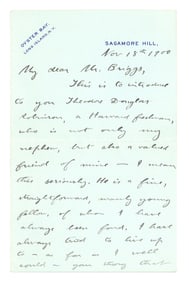 OYSTER BAY,
LONG ISLAND, N.Y.
SAGAMORE HILL.
Nov 18th 1900
My dear Mr. Briggs,
This is to introduce
to you Theodore Douglas
Robinson, a Harvard freshman,
who is not only my
nephew, but also a valued
friend of mine – I mean
this seriously. He is a fine,
straightforward, manly young
fellow, of whom I have
always been fond. I have
always tried to live up
as far as I well
could a young that